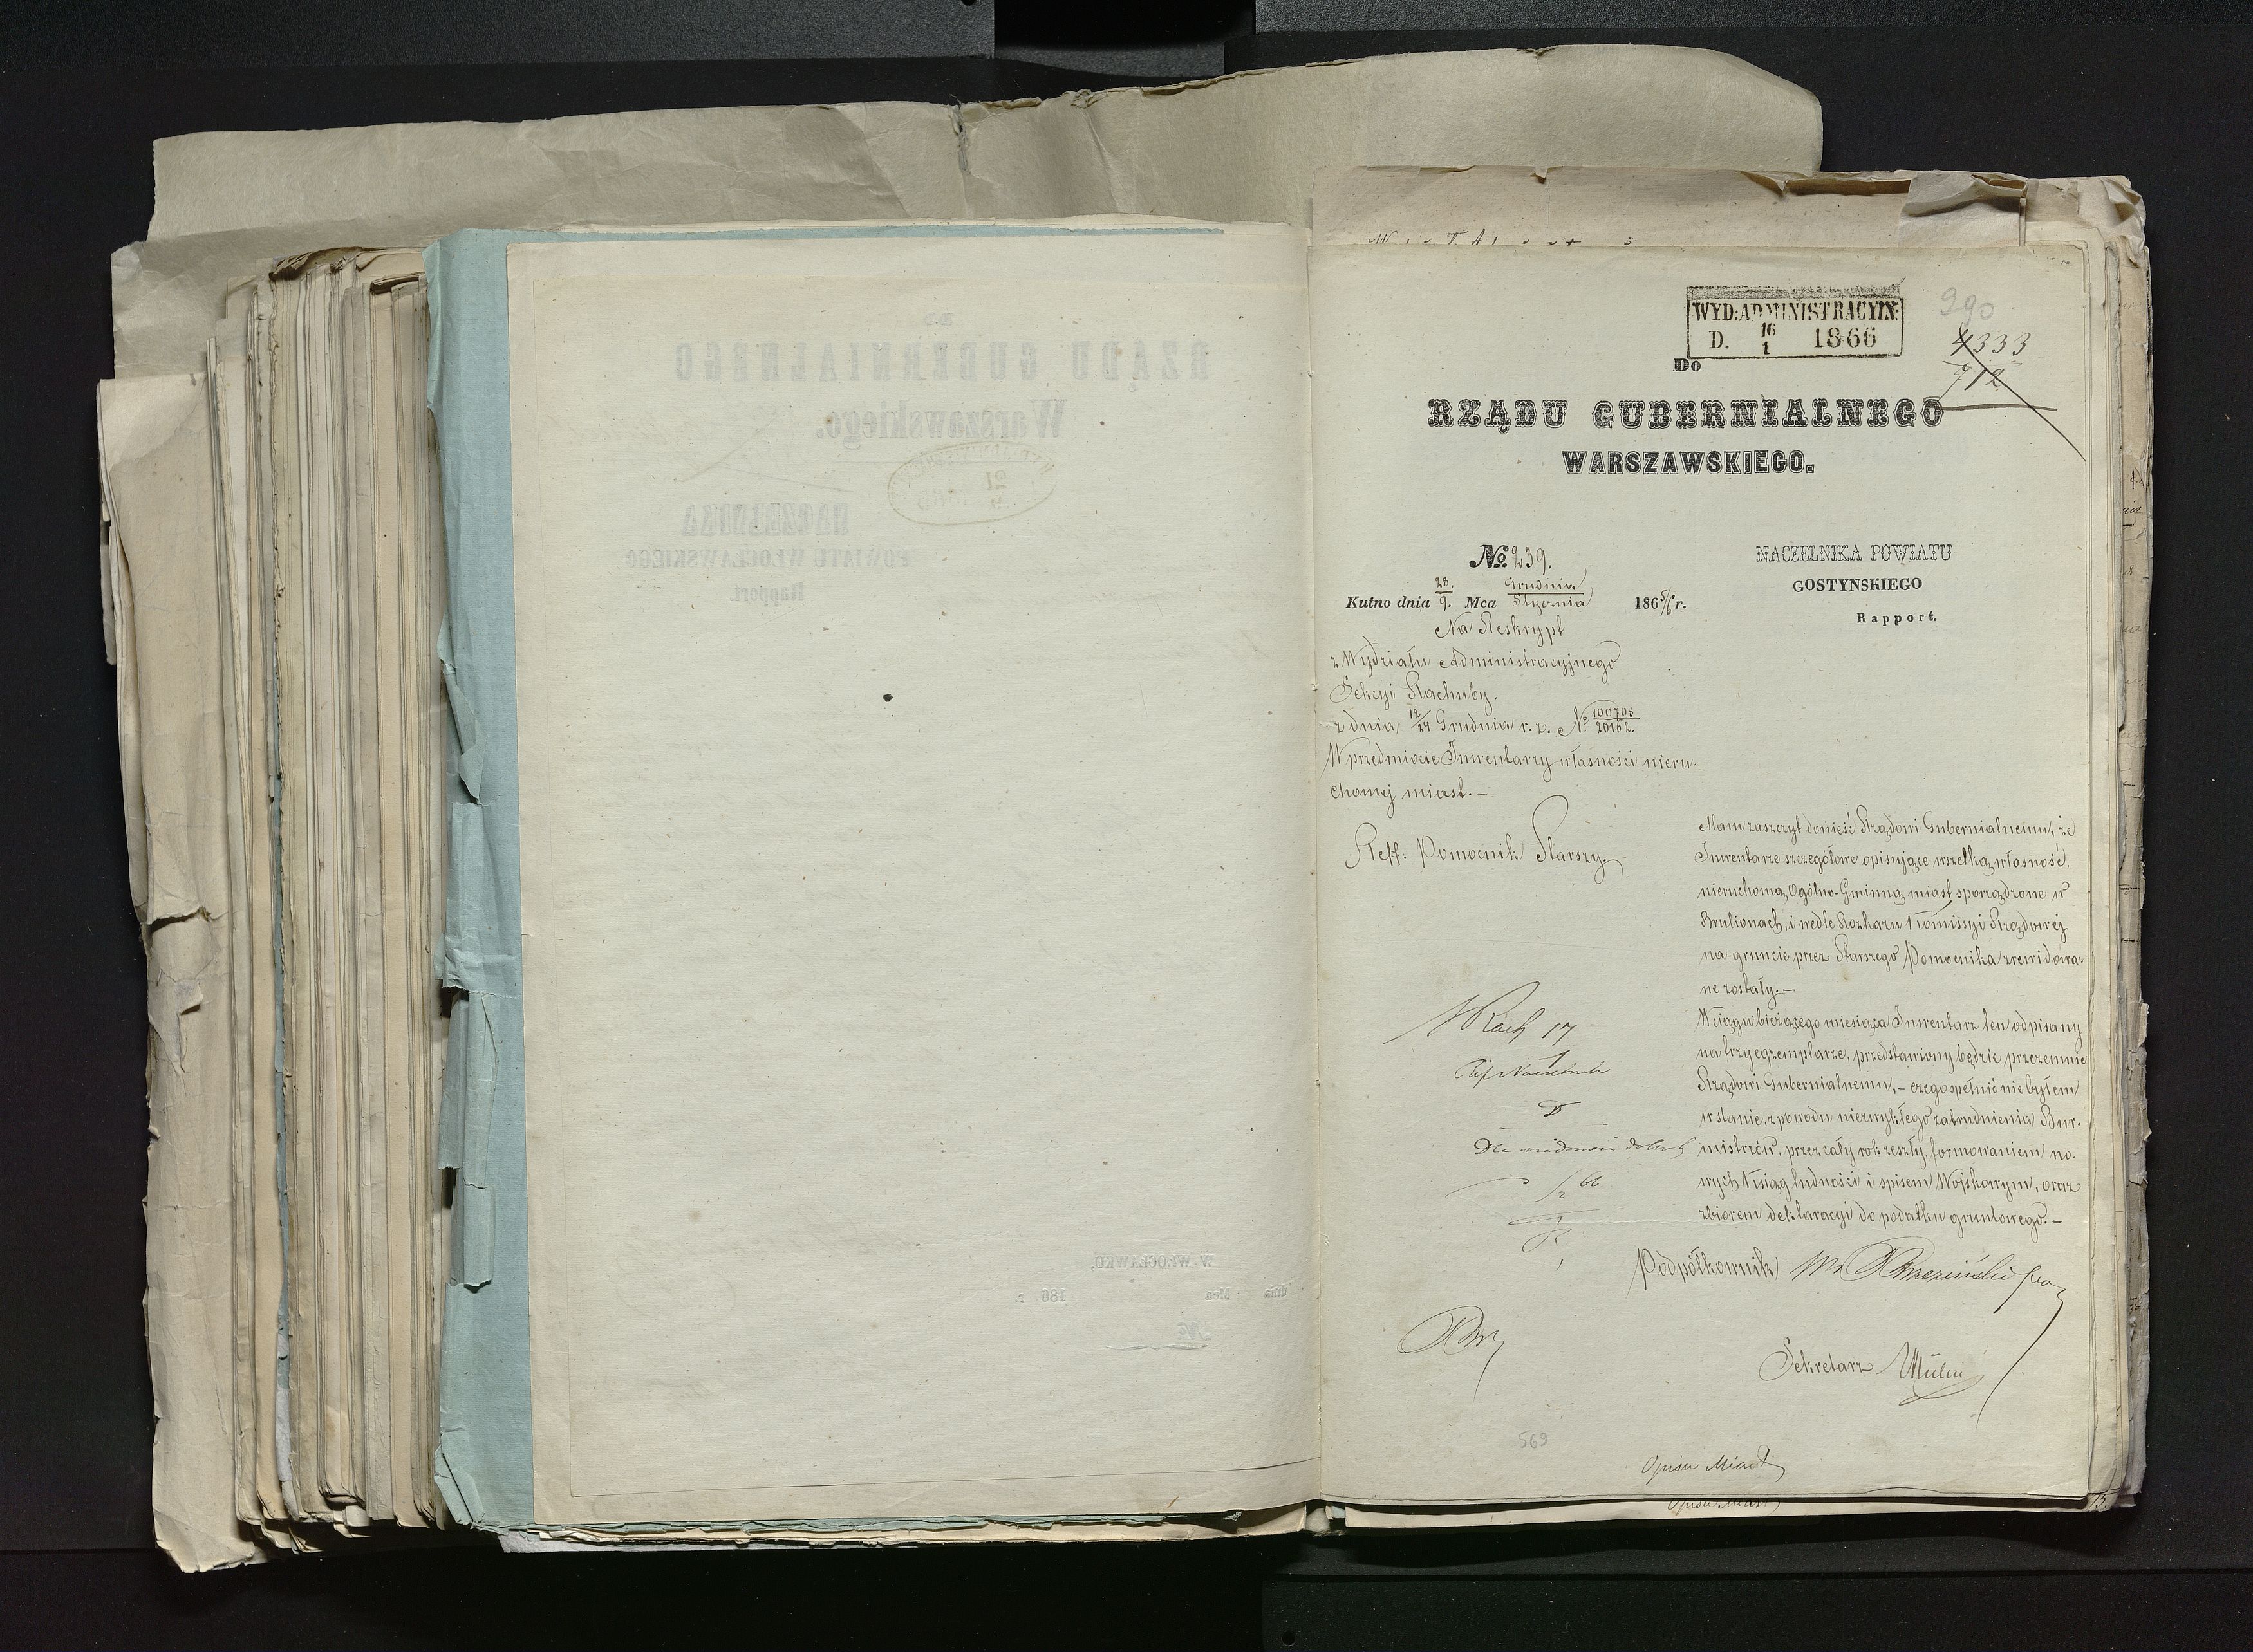 WYD: ADMINISTRACYIN:
D. 16/1 1866
990
4333
912
Do
RZĄDU GUBERNIALNEGO
WARSZAWSKIEGO.
NACZELNIKA POWIATU
GOSTYNSKIEGO
Rapport.
No. 239.
Kutno dnia 28/9. Mca Grudnia/Stycznia 1865/6 r.
Na Reskrypt
z Wydziału Administracyjnego
Sekcyi Rachuby.
z dnia 12/24 Grudnia r. z. No 100708/20162.
W przedmiocie Inwentarzy własności nieru-
chomej miast.—
Reff: Pomocnik Starszy.
Mam zaszczyt donieść Rządowi Gubernialnemu, że
Inwentarze szczegółowe opisujące wszelką własność
nieruchomą Ogólno-Gminną miast sporządzone w
Brulionach, i wedle Rozkazu Kommissyi Rządowéj
na gruncie przez Starszego Pomocnika zrewidowa-
ne zostały.—
W ciągu bieżącego miesiąca Inwentarz ten odpisany
na trzy egzemplarze, przedstawiony będzie przezemnie
Rządowi Gubernialnemu,— czego spełnić nie byłem
w stanie, z powodu niezwykłego zatrudnienia Bur-
mistrzów, przez cały rok zeszły, formowaniem no-
wych Ksiąg ludności i spisem Wojskowym, oraz
zbiorem deklaracyi do podatku gruntowego.—
Podpółkownik
Sekretarz
569
Opisu Miast
Opisu Miast
RZĄDU GUBERNIALNEGO
Warszawskiego.
NACZELNIKA
POWIATU WŁOCŁAWSKIEGO
Rapport.
W WŁOCŁAWKU,
dnia Mca 186 r.
No